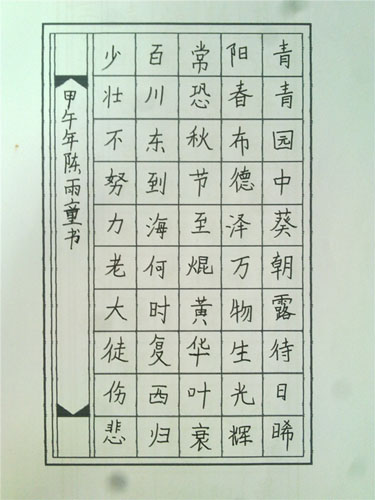 青青园中葵朝露待日晞
阳春布德泽万物生光辉
常恐秋节至焜黄华叶衰
百川东到海何时复西归
少壮不努力老大徒伤悲
甲午年陈雨童书